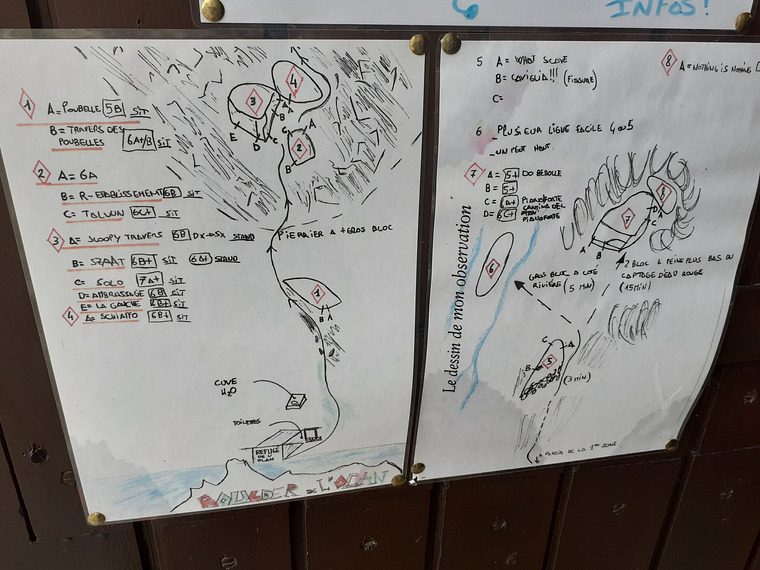 INFOS!
1 A = POUBELLE 5B SIT
B = TRAVERS DES
POUBELLES 6A+/B SIT
2 A = 6A
B = R-ETABLISSEMENT 6B SIT
C = TALWN 6C+ SIT
3 A = SLOOPY TRAVERS 6B DX→SX STAND
B = SRAAT 6B+ SIT 6A+ STAND
C = SOLO 7A+ SIT
D = AMBRUSSAGE 6B SIT
E = LA GAUCHE 6B+ SIT
4 A = SCHIATTO 6B+ SIT
4
3
A
B
C
D
E
C A
2
B
PIERRIER A +GROS BLOC
1
B A
CUVE
H2O
TOILETTES
REFUGE
DE L'
OLAN
BOULDER DE L'OLAN
5 A = WHAT SLOVE
B = CAVIGLIA!!! (FISSURE)
C =
6 _ PLUSIEUR LIGNE FACILE 4 OU 5
_ UN PEUT HAUT.
7 A = 5+ DO BEROLLE
B = 5+
C = 6A+ PIANOFORTE
D = 6C+ CANTINA DEL
PIANOFORTE
8 A = NOTHING IS NOTHING
Le dessin de mon observation
8
7
D A
C
A B
6
GROS BLOC A COTÉ
RIVIÈRE (5 MIN)
2 BLOC A PEINE PLUS BAS DU
CAPTAGE D'EAU ROUGE
(15 MIN)
C A
5
B
(3 MIN)
A PARTIR DE LA 1ère ZONE